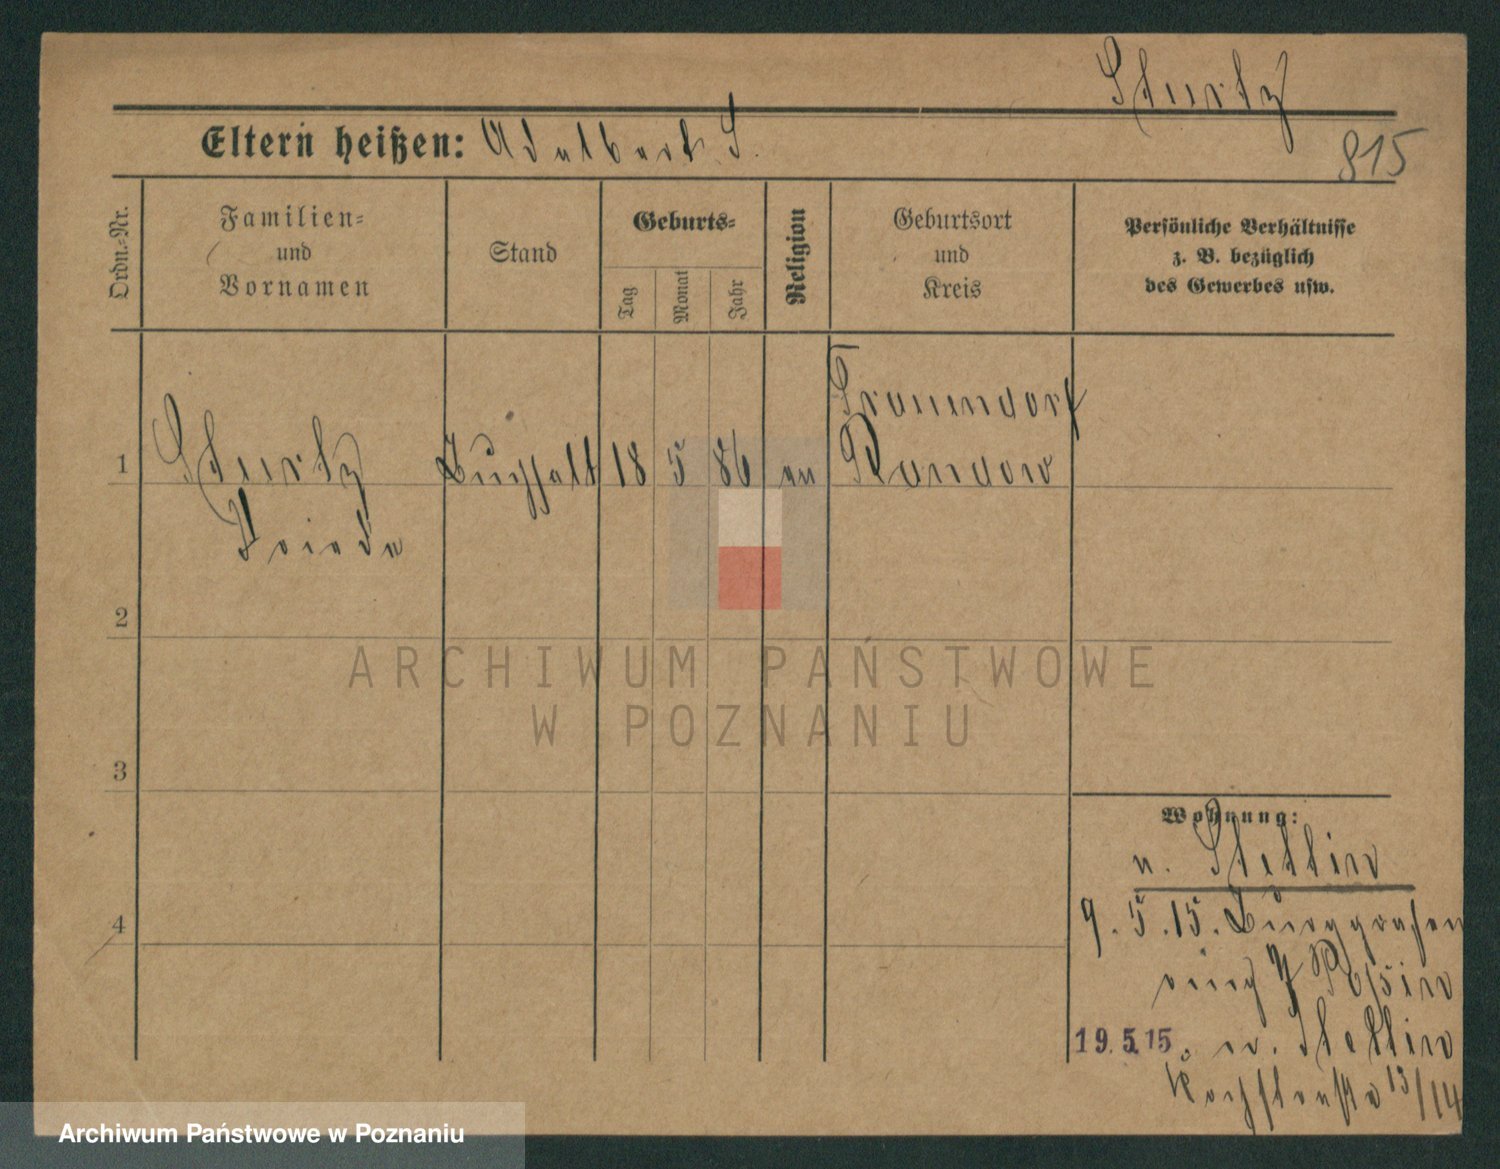 Sturtz
815
Eltern heißen: Adalbert S.
Ordn.=Nr.
Familien=
und
Vornamen
Stand
Geburts=
Tag
Monat
Jahr
Religion
Geburtsort
und
Kreis
Persönliche Verhältnisse
z. B. bezüglich
des Gewerbes usw.
Frauendorf
1 Sturtz Buchhalt 18 5 86 ev Randow
Frieda
2
3
4
ARCHIWUM PAŃSTWOWE
W POZNANIU
Wohnung:
n. Stettin
9.5.15. Burggrafen
ring 7
19.5.15. n. Stettin
13/14
Archiwum Państwowe w Poznaniu